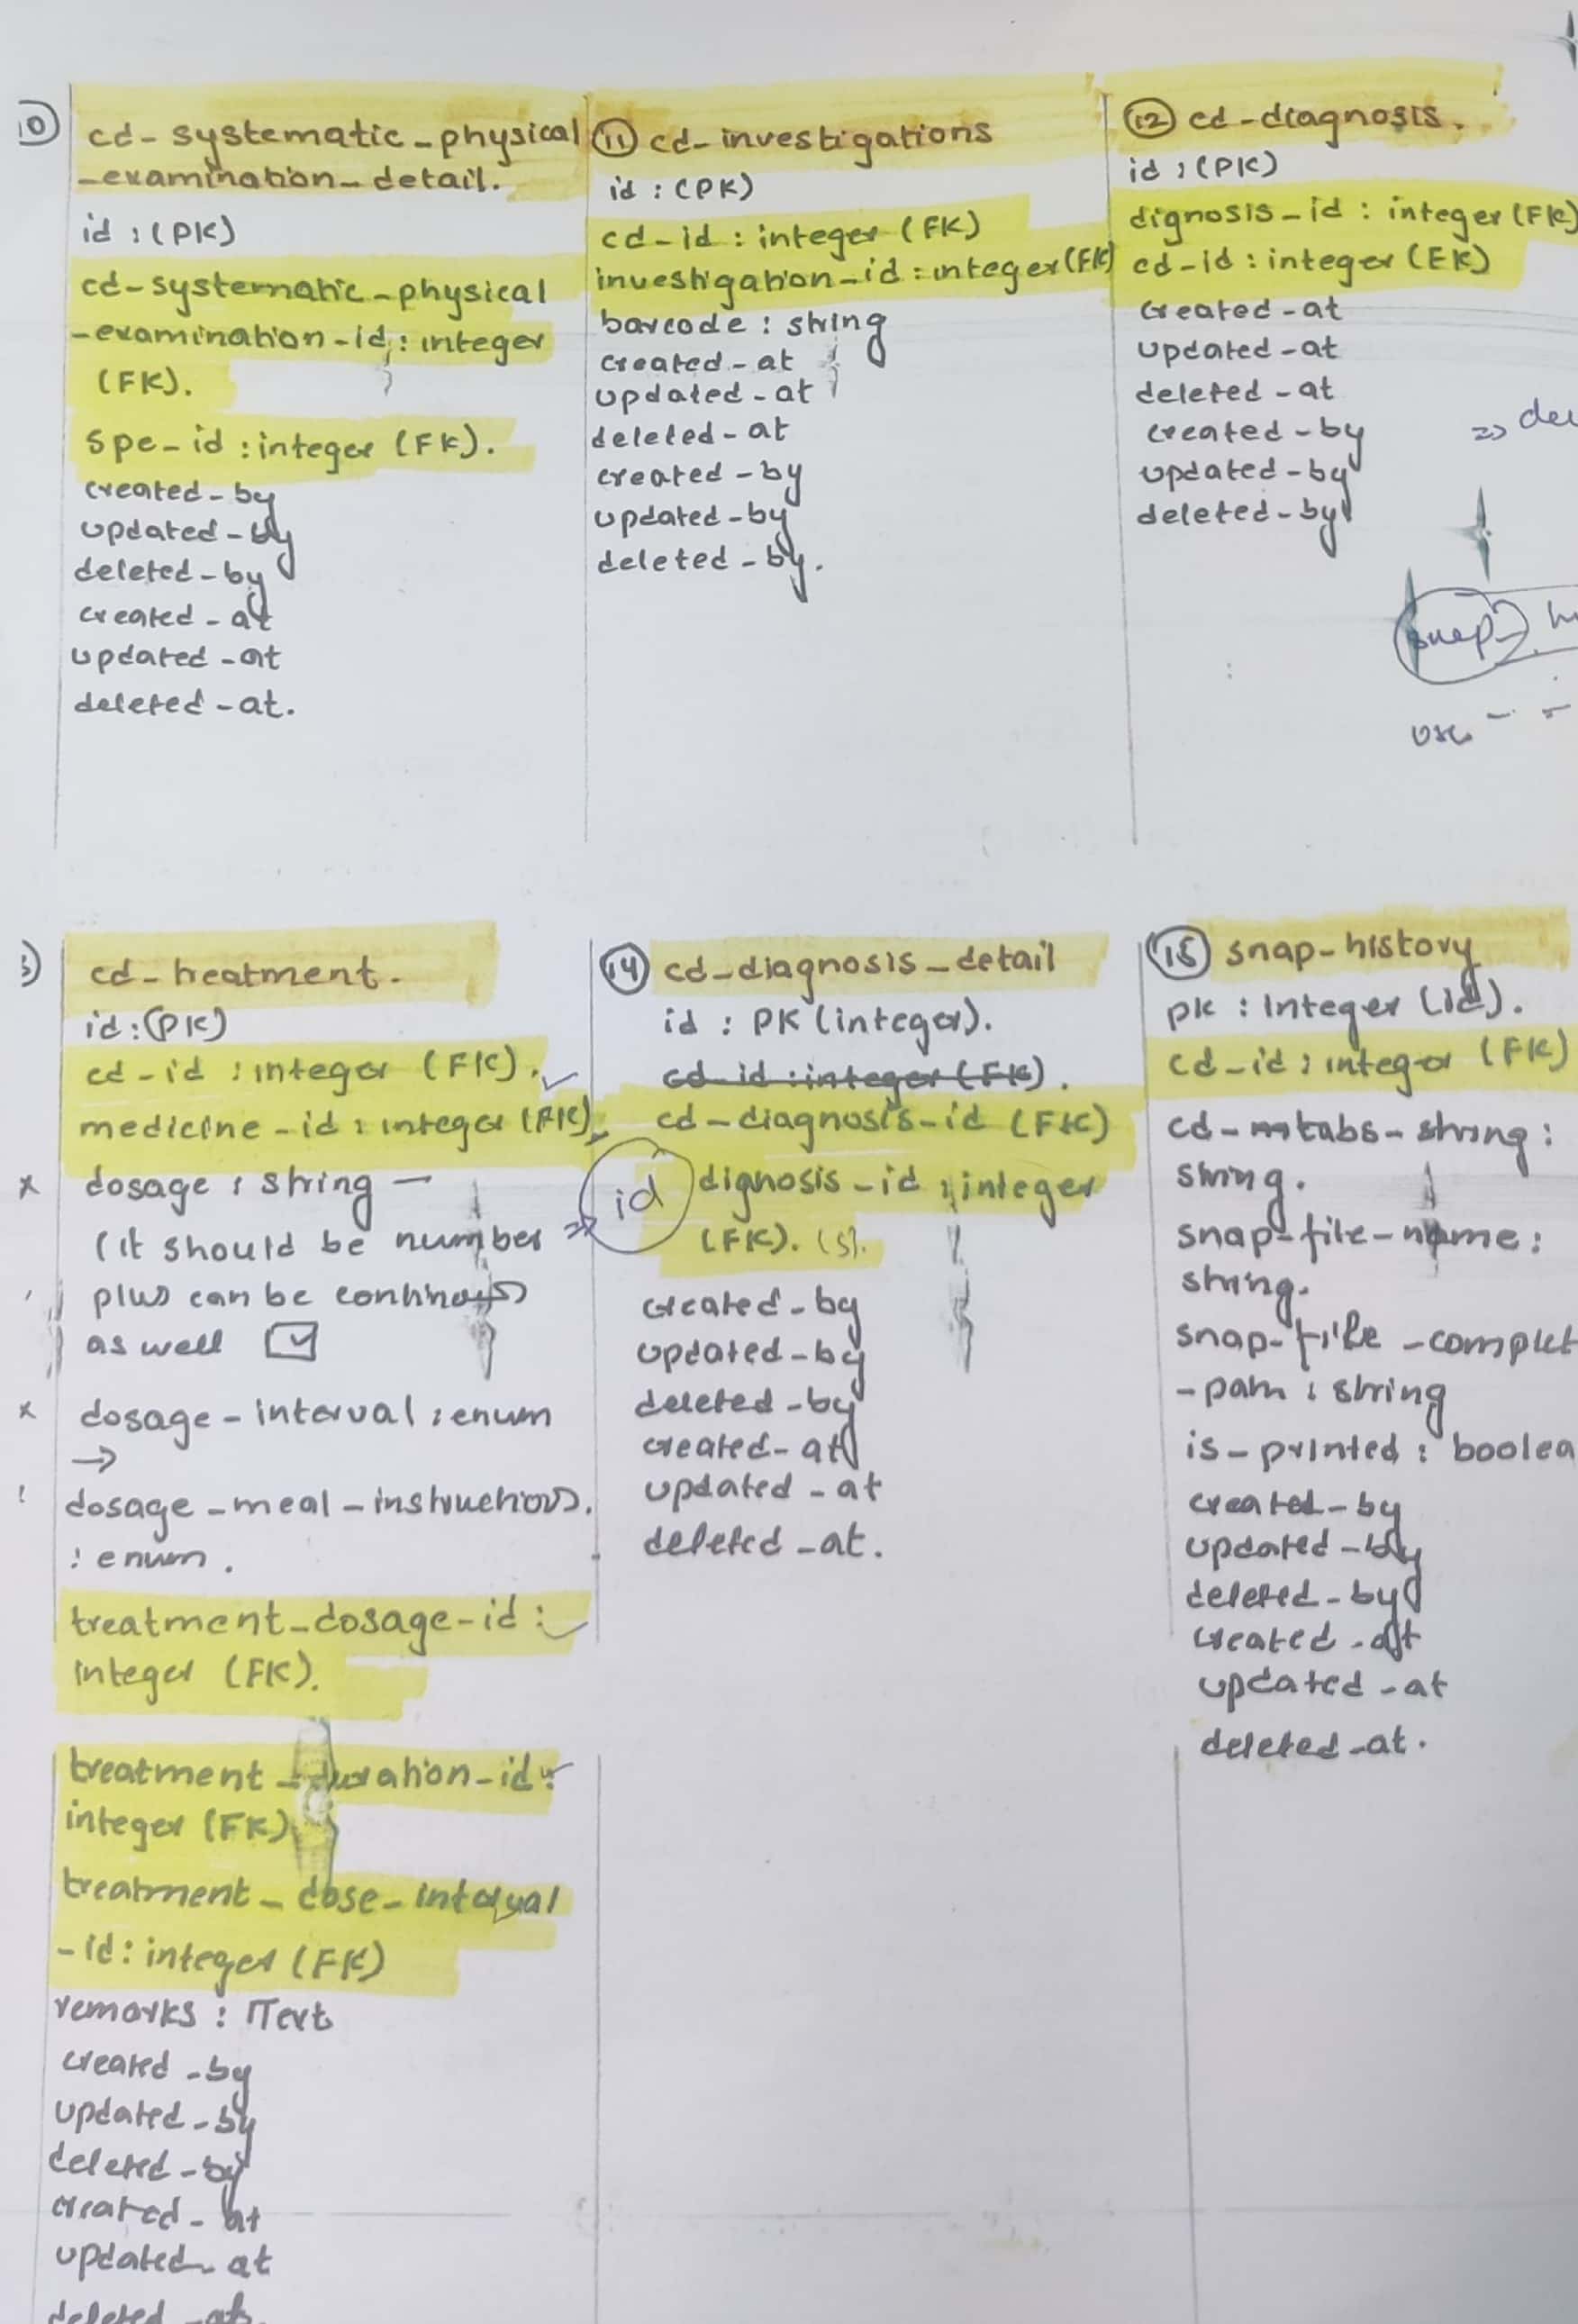 10
cd-systematic-physical
-examination-detail.
id : (PK)
cd-systematic-physical
-examination-id : integer
(FK).
spe-id : integer (FK).
created-by
updated-by
deleted-by
created-at
updated-at
deleted-at.
11 cd-investigations
id : (PK)
cd-id : integer (FK)
investigation-id : integer (FK)
barcode : string
created-at
updated-at
deleted-at
created-by
updated-by
deleted-by.
12 cd-diagnosis.
id : (PK)
dignosis-id : integer (FK)
cd-id : integer (FK)
created-at
updated-at
deleted-at
created-by
updated-by
deleted-by
snap
cd-treatment.
id : (PK)
cd-id : integer (FK).
medicine-id : integer (FK),
x dosage : string -
(it should be number
plus can be continous)
as well
x dosage-interval : enum
→
dosage-meal-instructions.
: enum.
treatment-dosage-id :
integer (FK).
treatment-duration-id :
integer (FK)
treatment-dose-interval
-id : integer (FK)
remarks : Text
created-by
updated-by
deleted-by
created-at
updated-at
deleted-at.
14 cd-diagnosis-detail
id : PK (integer).
cd-id : integer (FK).
cd-diagnosis-id (FK)
id
dignosis-id : integer
(FK). (s).
created-by
updated-by
deleted-by
created-at
updated-at
deleted-at.
15 snap-history
pk : integer (id).
cd-id : integer (FK)
cd-tabs-string :
string.
snap-file-name :
string.
snap-file-complet
-path : string
is-printed : boolea
created-by
updated-by
deleted-by
created-at
updated-at
deleted-at.